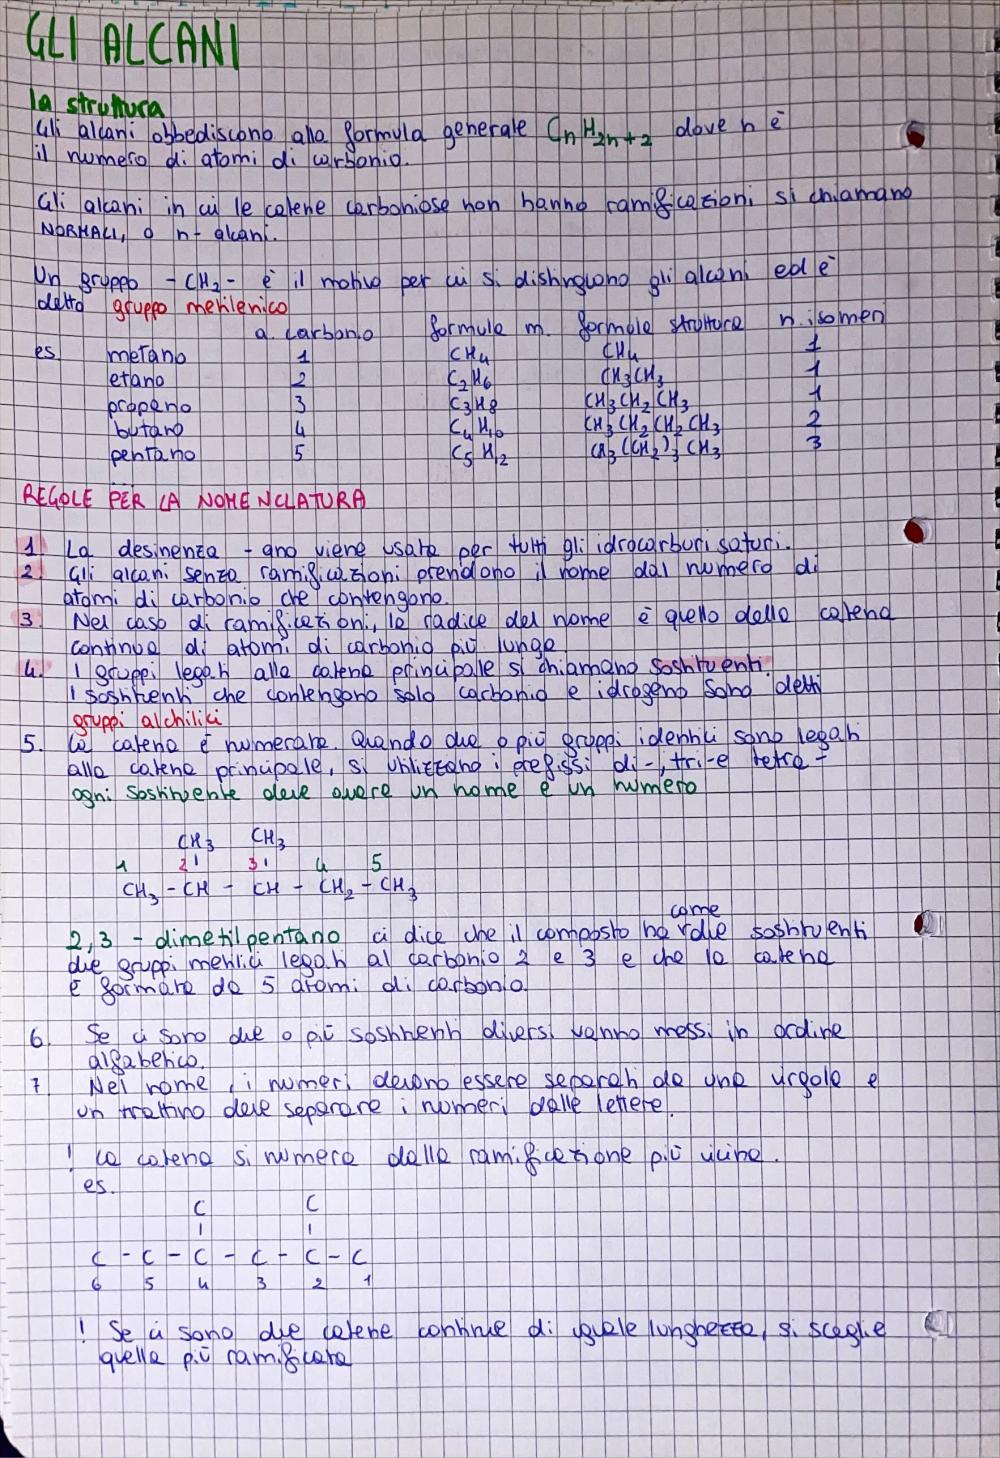 GLI ALCANI
la struttura
Gli alcani obbediscono alla formula generale CnH2n+2 dove n è
il numero di atomi di carbonio.
Gli alcani in cui le catene carboniose non hanno ramificazioni si chiamano
NORMALI, o n-alcani.
Un gruppo -CH2- è il motivo per cui si distinguono gli alcani ed è
detto gruppo metilenico
a. carbonio formula m. formula struttura n. isomeri
es. metano 1 CH4 CH4 1
etano 2 C2H6 CH3CH3 1
propano 3 C3H8 CH3CH2CH3 1
butano 4 C4H10 CH3CH2CH2CH3 2
pentano 5 C5H12 CH3(CH2)3CH3 3
REGOLE PER LA NOMENCLATURA
1. La desinenza -ano viene usata per tutti gli idrocarburi saturi.
2. Gli alcani senza ramificazioni prendono il nome dal numero di
atomi di carbonio che contengono.
3. Nel caso di ramificazioni, la radice del nome è quello della catena
continua di atomi di carbonio più lunga.
4. I gruppi legati alla catena principale si chiamano sostituenti.
I sostituenti che contengono solo carbonio e idrogeno sono detti
gruppi alchilici
5. La catena è numerata. Quando due o più gruppi identici sono legati
alla catena principale, si utilizzano i prefissi di-, tri- e tetra-
ogni sostituente deve avere un nome e un numero
CH3 CH3
1 2 3 4 5
CH3 - CH - CH - CH2 - CH3
come
2,3 - dimetilpentano ci dice che il composto ha due sostituenti
due gruppi metilici legati al carbonio 2 e 3 e che la catena
è formata da 5 atomi di carbonio.
6. Se ci sono due o più sostituenti diversi vanno messi in ordine
alfabetico.
7 Nel nome, i numeri devono essere separati da una virgola e
un trattino deve separare i numeri dalle lettere.
! La catena si numera dalla ramificazione più vicina.
es.
C C
C - C - C - C - C - C
6 5 4 3 2 1
! Se ci sono due catene continue di uguale lunghezza, si sceglie
quella più ramificata